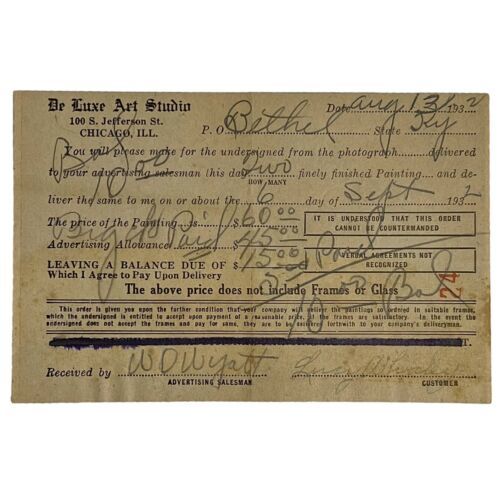 De Luxe Art Studio
100 S. Jefferson St.
CHICAGO, ILL.
Date Aug 13 1932
P. O. Bethel State Ky
You will please make for the undersigned from the photograph delivered
to your advertising salesman this day Two finely finished Painting and de-
HOW MANY
liver the same to me on or about the 6 day of Sept 1932
10 00
The price of the Painting is $ 60 00
Advertising Allowance $ 45 00
LEAVING A BALANCE DUE OF $ 15 00
Which I Agree to Pay Upon Delivery
Paid
5 00 Paid
10 00 Bal
IT IS UNDERSTOOD THAT THIS ORDER
CANNOT BE COUNTERMANDED
VERBAL AGREEMENTS NOT
RECOGNIZED
24
The above price does not include Frames or Glass
This order is given you upon the further condition that your company will deliver the paintings so ordered in suitable frames,
which the undersigned is entitled to accept upon payment of a reasonable price, if the frames are satisfactory. In the event the
undersigned does not accept the frames and pay for same, they are to be returned forthwith to your company's deliveryman.
T.
Received by W D Wyatt
ADVERTISING SALESMAN
CUSTOMER